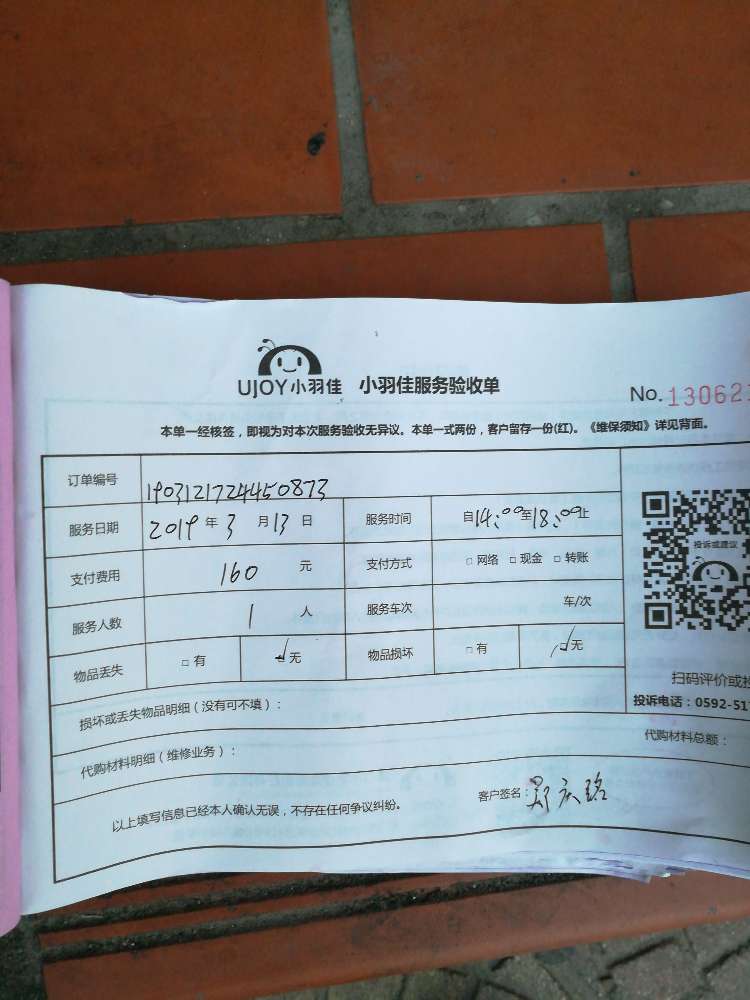 UJOY小羽佳 小羽佳服务验收单
No. 13062
本单一经核签，即视为对本次服务验收无异议。本单一式两份，客户留存一份(红)。《维保须知》详见背面。
订单编号 1903121724450873
服务日期 2019 年 3 月 13 日 服务时间 自14:00至18:00止
投诉或建议
支付费用 160 元 支付方式 □ 网络 □ 现金 □ 转账
服务人数 1 人 服务车次 车/次
物品丢失 □ 有 ☑ 无 物品损坏 □ 有 ☑ 无
扫码评价或投
投诉电话：0592-517
损坏或丢失物品明细（没有可不填）：
代购材料明细（维修业务）： 代购材料总额：
以上填写信息已经本人确认无误，不存在任何争议纠纷。 客户签名：